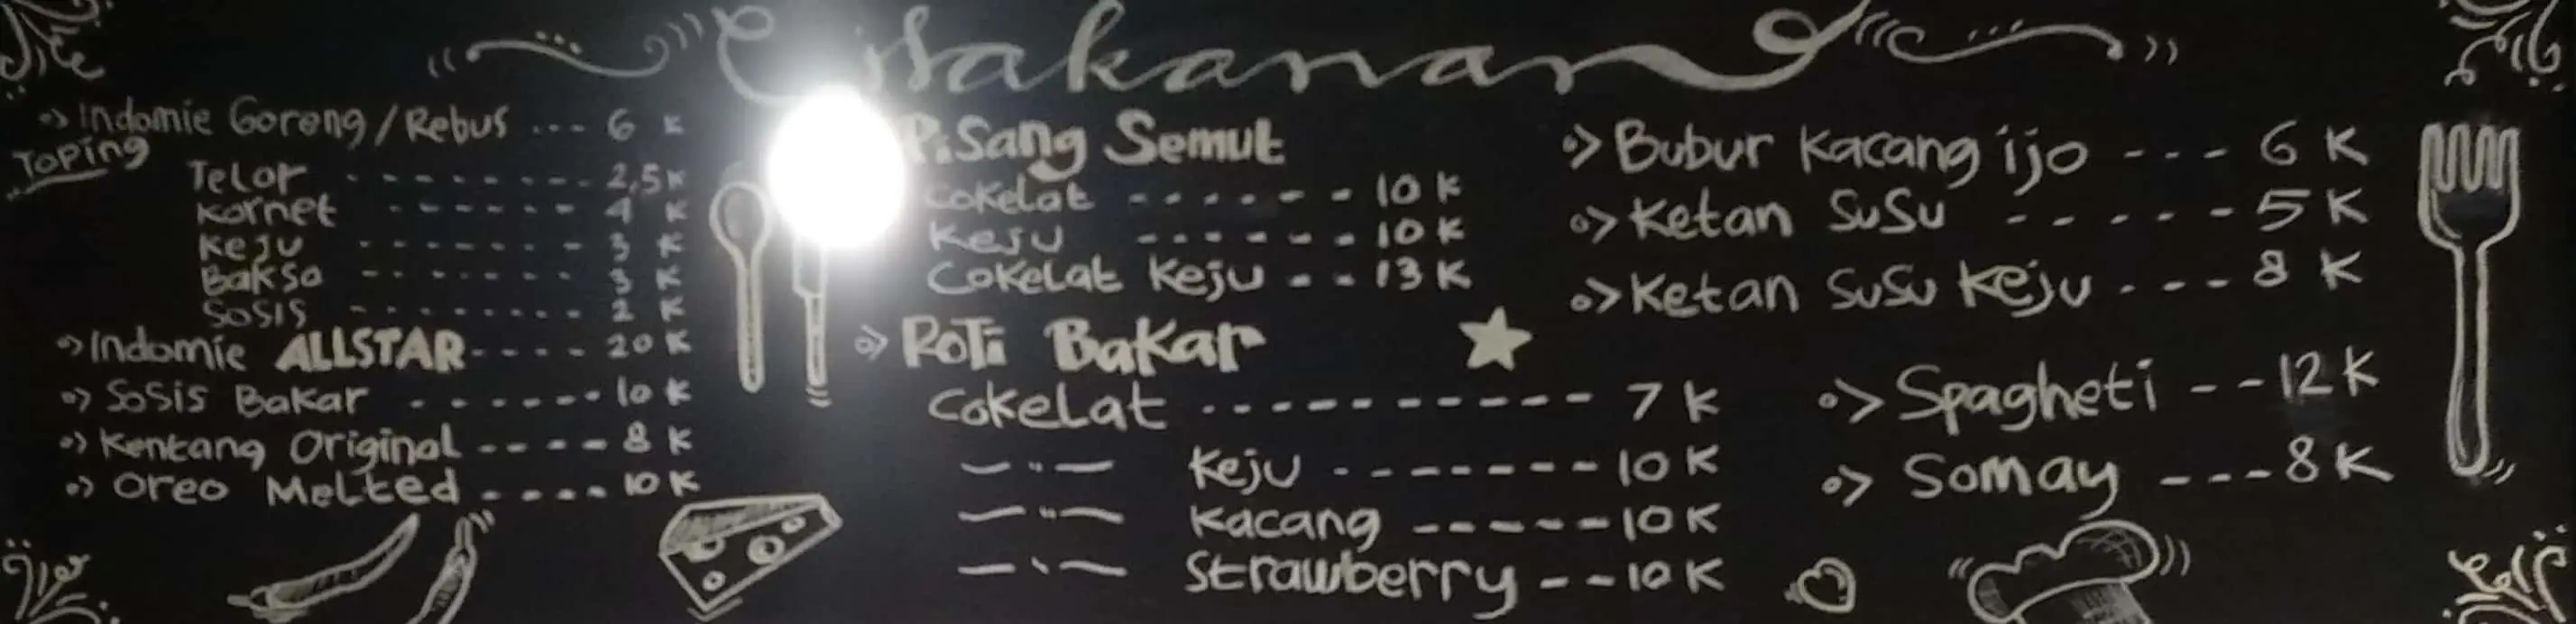 Makanan
Indomie Goreng/Rebus ... 6 K
Toping
Telor - - - - - - - - 2,5K
Kornet - - - - - - 4 K
Keju - - - - - - - 3 K
Bakso - - - - - - - 3 K
Sosis - - - - - - - - 2 K
Indomie ALLSTAR - - - - 20 K
Sosis Bakar - - - - - - 10 K
Kentang Original - - - - 8 K
Oreo Melted - - - - 10 K
Pisang Semut
Cokelat - - - - - - 10 K
Keju - - - - - - 10 K
Cokelat Keju - - 13 K
Roti Bakar
Cokelat - - - - - - - - - - - 7 K
— " — Keju - - - - - - - 10 K
— " — Kacang - - - - - 10 K
— " — Strawberry - - 10 K
Bubur Kacang ijo - - - 6 K
Ketan Susu - - - - - 5 K
Ketan Susu Keju - - - 8 K
Spagheti - - 12 K
Somay - - - 8 K